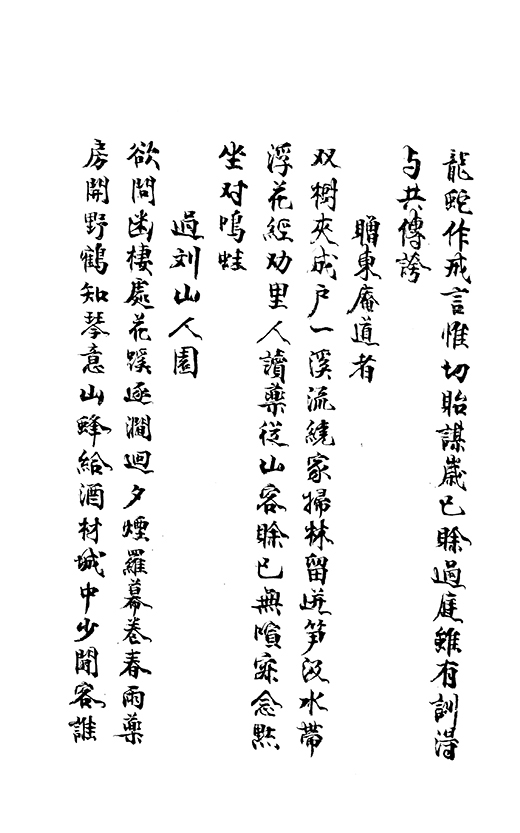 龍蛇作戒言惟切貽謀歳已賒過庭雖有訓得
与共傳誇
贈東庵道者
双樹夾成户一溪流繞家掃林留迸笋汲水帶
浮花經劝里人讀藥従山客賒已無喧寂念黙
坐对鳴蛙
過刘山人園
欲問幽棲處花蹊逐澗迴夕煙羅幕卷春雨藥
房開野鶴知琴意山蜂給酒材城中少閒客誰